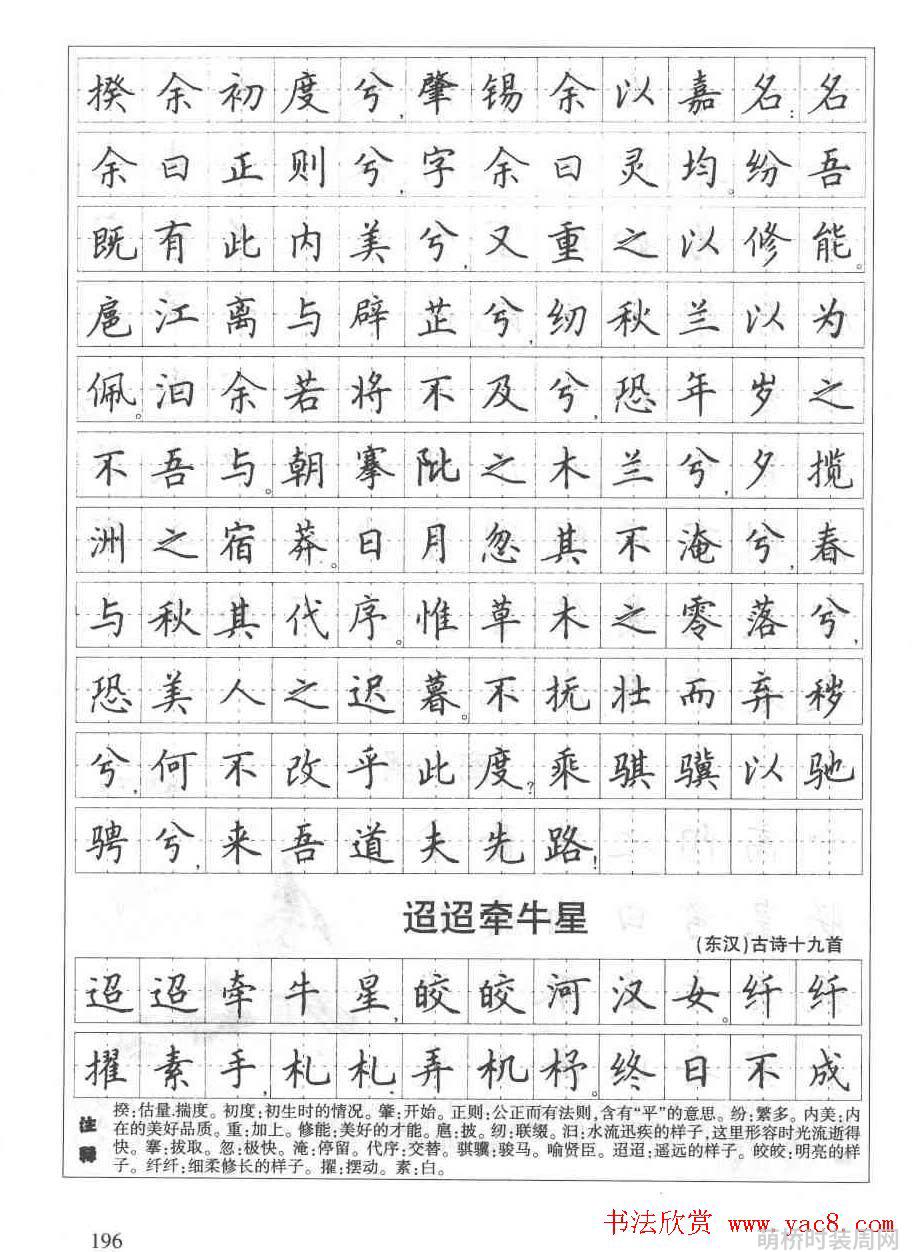 揆余初度兮,肇锡余以嘉名:名
余曰正则兮,字余曰灵均。纷吾
既有此内美兮,又重之以修能。
扈江离与辟芷兮,纫秋兰以为
佩。汩余若将不及兮,恐年岁之
不吾与。朝搴阰之木兰兮,夕揽
洲之宿莽。日月忽其不淹兮,春
与秋其代序。惟草木之零落兮,
恐美人之迟暮。不抚壮而弃秽
兮,何不改乎此度?乘骐骥以驰
骋兮,来吾道夫先路!
迢迢牵牛星
(东汉)古诗十九首
迢迢牵牛星,皎皎河汉女。纤纤
擢素手,札札弄机杼。终日不成
注释
揆:估量、揣度。初度:初生时的情况。肇:开始。正则:公正而有法则,含有“平”的意思。纷:繁多。内美:内
在的美好品质。重:加上。修能:美好的才能。扈:披。纫:联缀。汩:水流迅疾的样子,这里形容时光流逝得
快。搴:拔取。忽:极快。淹:停留。代序:交替。骐骥:骏马。喻贤臣。迢迢:遥远的样子。皎皎:明亮的样
子。纤纤:细柔修长的样子。擢:摆动。素:白。
196
书法欣赏 www.yac8.com
萌桥时装周网